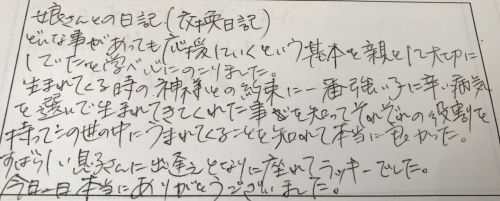 娘さんとの日記(交換日記)
どんな事があっても応援していくという基本を親として大切に
していたと学べ心にのこりました。
生まれてくる時の神様との約束に一番強い子に辛い病気
を選んで生まれてきてくれた事を知ってそれぞれの役割を
持ってこの世の中にうまれてくることを知れて本当に良かった。
すばらしい息子さんに出逢えとなりに座れてラッキーでした。
今日一日本当にありがとうございました。